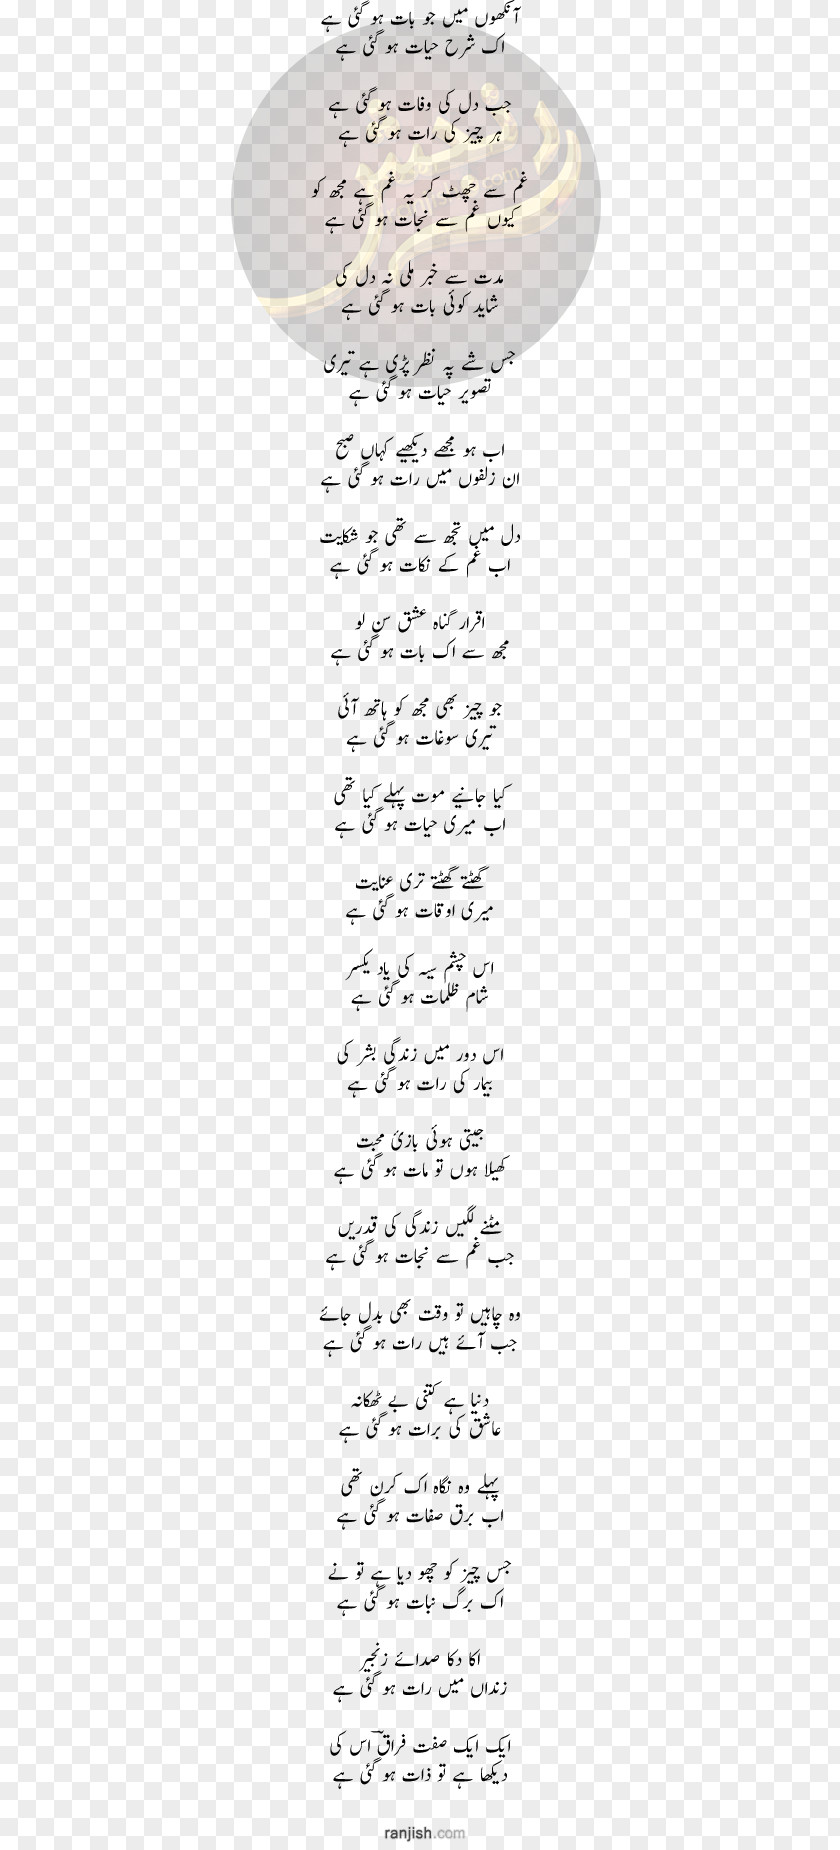 آنکھوں میں جو بات ہو گئی ہے
اک شرح حیات ہو گئی ہے
جب دل کی وفات ہو گئی ہے
ہر چیز کی رات ہو گئی ہے
غم سے چھٹ کر یہ غم ہے مجھ کو
کیوں غم سے نجات ہو گئی ہے
مدت سے خبر ملی نہ دل کی
شاید کوئی بات ہو گئی ہے
جس شے پہ نظر پڑی ہے تیری
تصویر حیات ہو گئی ہے
اب ہو مجھے دیکھیے کہاں صبح
ان زلفوں میں رات ہو گئی ہے
دل میں تجھ سے تھی جو شکایت
اب غم کے نکات ہو گئی ہے
اقرار گناہ عشق سن لو
مجھ سے اک بات ہو گئی ہے
جو چیز بھی مجھ کو ہاتھ آئی
تیری سوغات ہو گئی ہے
کیا جانیے موت پہلے کیا تھی
اب میری حیات ہو گئی ہے
گھٹتے گھٹتے تری عنایت
میری اوقات ہو گئی ہے
اس چشم سیہ کی یاد یکسر
شام ظلمات ہو گئی ہے
اس دور میں زندگی بشر کی
بیمار کی رات ہو گئی ہے
جیتی ہوئی بازئ محبت
کھیلا ہوں تو مات ہو گئی ہے
مٹنے لگیں زندگی کی قدریں
جب غم سے نجات ہو گئی ہے
وہ چاہیں تو وقت بھی بدل جائے
جب آئے ہیں رات ہو گئی ہے
دنیا ہے کتنی بے ٹھکانہ
عاشق کی برات ہو گئی ہے
پہلے وہ نگاہ اک کرن تھی
اب برق صفات ہو گئی ہے
جس چیز کو چھو دیا ہے تو نے
اک برگ نبات ہو گئی ہے
اکا دکا صدائے زنجیر
زنداں میں رات ہو گئی ہے
ایک ایک صفت فراقؔ اس کی
دیکھا ہے تو ذات ہو گئی ہے
ranjish.com